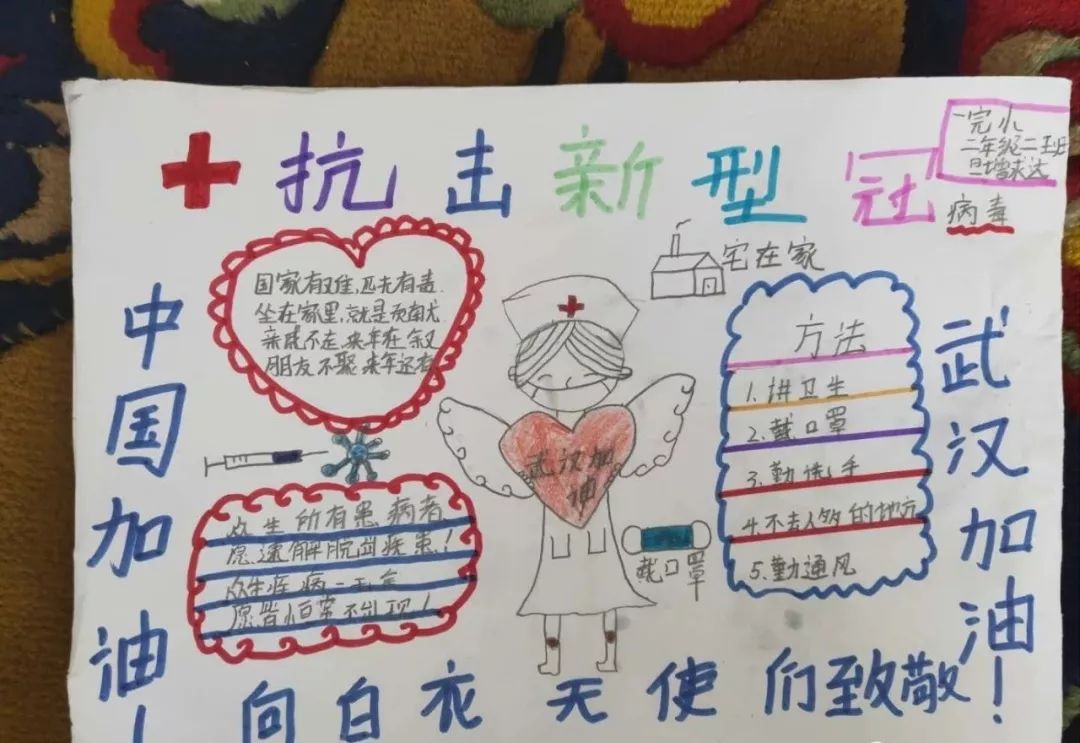 抗击新型冠
病毒
一完小
二年级二班
旦增求达
国家有难,匹夫有责.
坐在家里,就是贡献尤.
亲戚不走,来年在叙
朋友不聚来年还有
宅在家
方法
1.讲卫生
2.戴口罩
3.勤洗手
4.不去人多的地方
5.勤通风
中国加油!
武汉加油
众生所有患病者
愿速解脱出疾患!
众生疾病一无
愿皆恒常不出现!
戴口罩
武汉加油!
向白衣天使们致敬